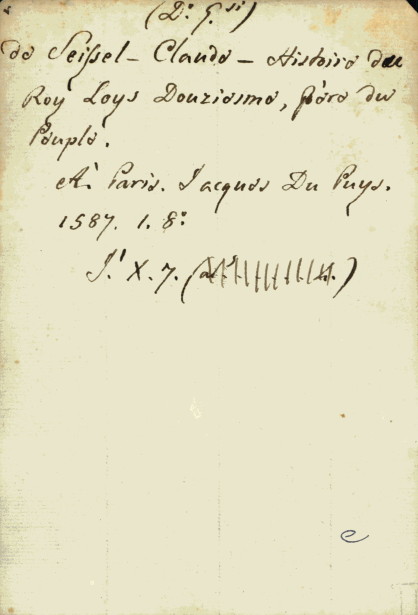 (D. G.si)
de Seissel - Claude - Histoire du
Roy Loys Douziesme, père du
Peuple.
A Paris. Jacques Du Puys.
1587. 1. 8°
J.' X. 7. (
e